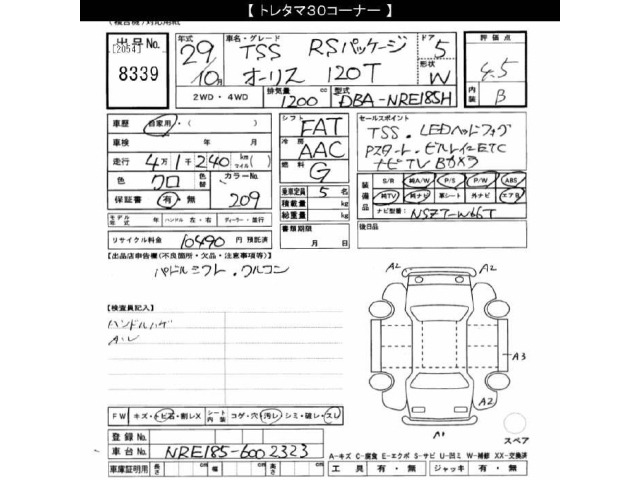 【 トレタマ30コーナー 】
(複合機)対応用紙
出品号No.
[2054]
8339
年式 29年
10月
車名・グレード TSS RSパッケージ
オーリス 120T
ドア 5
形状 W
評価点
4.5
内装 B
2WD・4WD
排気量 1200 cc
型式 DBA-NRE185H
車歴 自家用・( )
車検 年 月
走行 4万1千240 km マイル( )
色 クロ 色替 カラーNo. 209
保証書 有・無
モデル年式 年 ハンドル 左・右 ディーラー・並行
リサイクル料金 10490円 預託済
シフト FAT
冷房 AAC
燃料 G
乗車定員 5 名
積載量 kg
総重量 kg
書類期限
月 日
セールスポイント
TSS. LEDヘッドフォグ
Pスタート. ビルトインETC
ナビTV Bカメラ
装備品 S/R 純A/W P/S P/W ABS
純TV 純ナビ 革シート 外ナビ エアB
ナビ型番( NSZT-W66T )
後日品
【出品店申告欄(不良箇所・欠品・注意事項等)】
パドルシフト. クルコン
【検査員記入】
ハンドルハゲ
A2
A2
A3
A2
A1
スペア
FW キズ・トビ石・割レX シート内装 コゲ・穴・汚レ・シミ・破レ・スレ
登録No.
車台No. NRE185-6002323
車庫証明用 長さ cm 幅 cm 高さ cm
A-キズ C-腐食 E-エクボ S-サビ U-凹ミ W-補修 XX-交換済
工具 有・無 ジャッキ 有・無